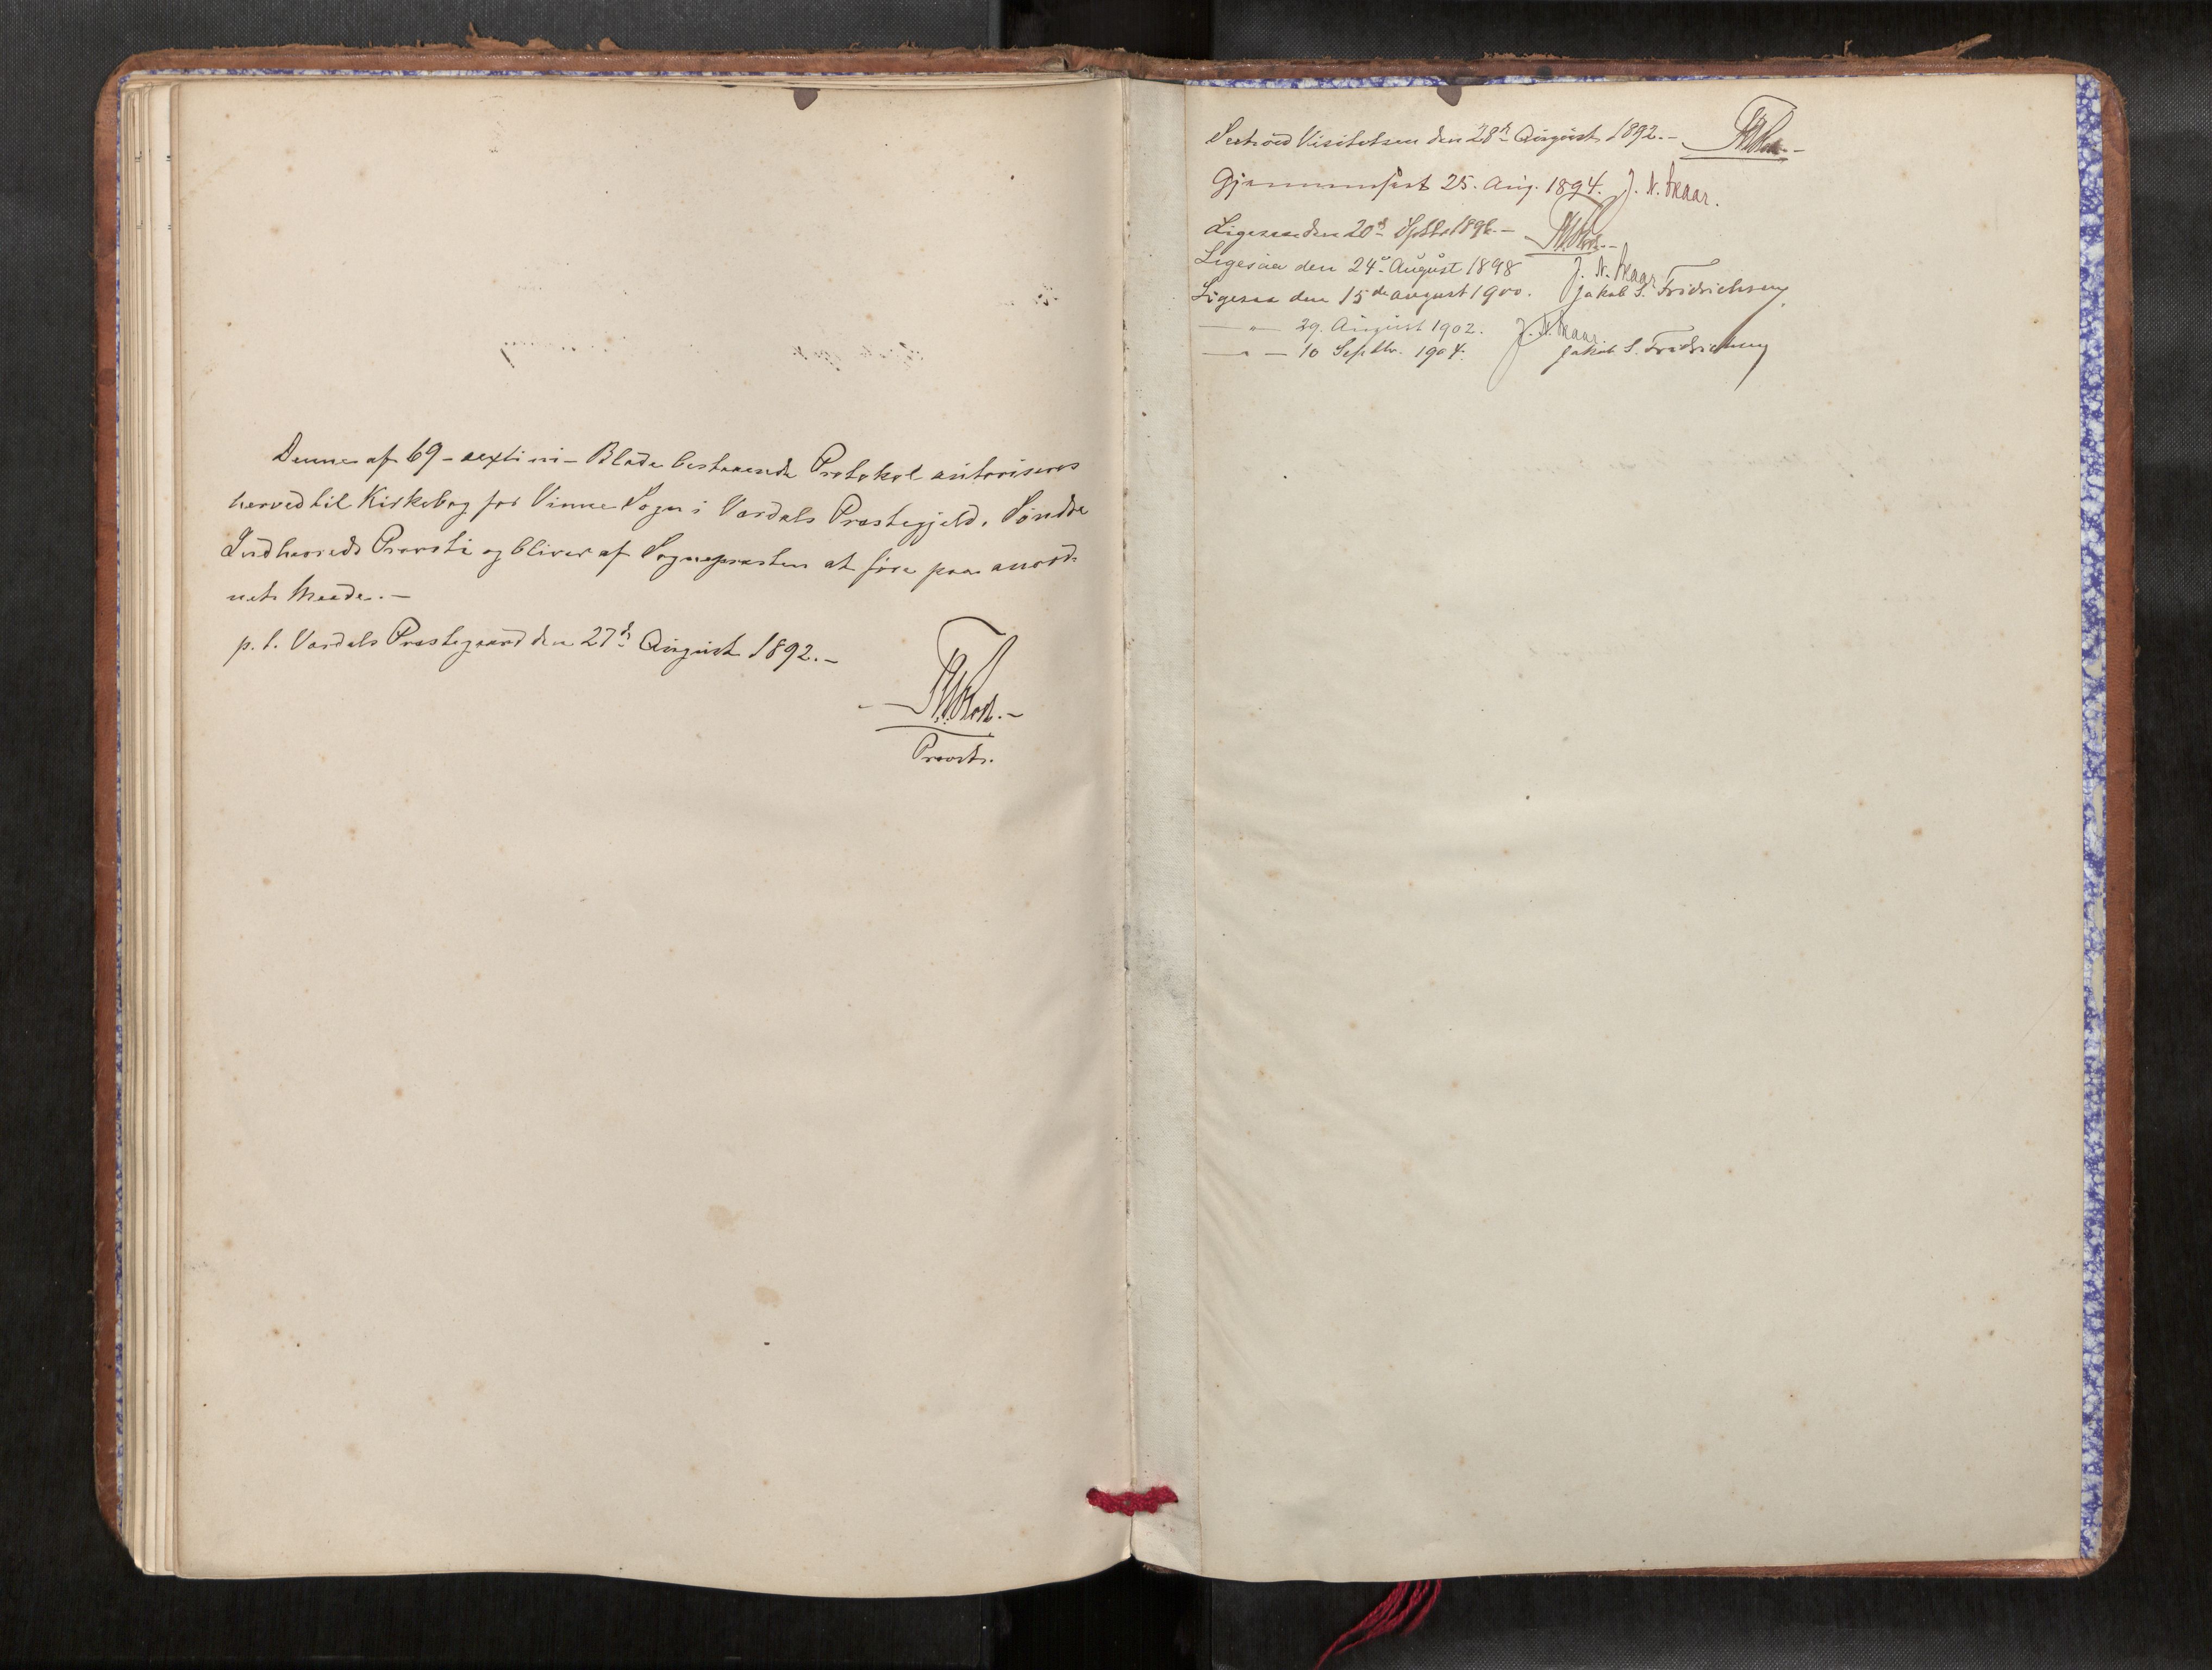 Denne af 69 - sexti ni - Blade bestaaende Protokol autoriseres
herved til Kirkebog for Vinne Sogn i Værdals Præstegjeld, Søndre
Indherreds Provsti og bliver af Sognepræsten at føre paa anord-
net Maade. -
p. t. Værdals Præstegaard den 27de August 1892. -
Provst.
Seet ved Visitatsen den 28de August 1892. -
Gjennemseet 25. Aug. 1894. J. N. Skaar.
Ligesaa den 20de Septbr 1896. -
Ligesaa den 24de August 1898 J. N. Skaar
Ligesaa den 15de august 1900. Jakob S. Fridrichsen
— " — 29. August 1902. J. N. Skaar.
— " — 10 Septbr. 1904. Jakob S. Fridrichsen